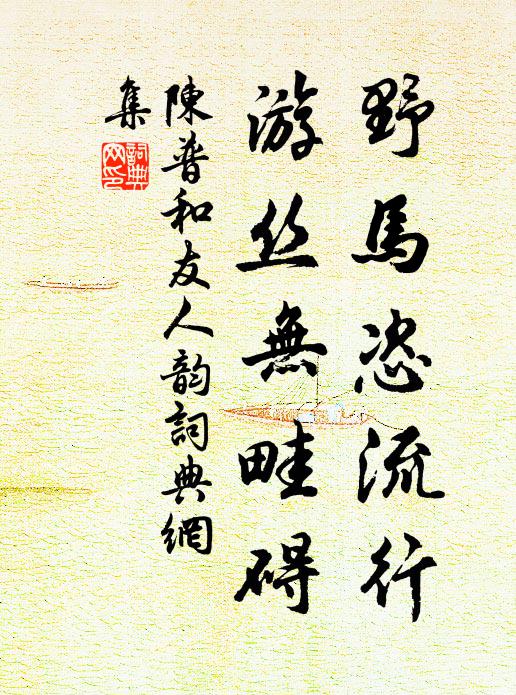 野馬恣流行
游丝無畦碍
陳普和友人韵詞典網
集
詞典網印